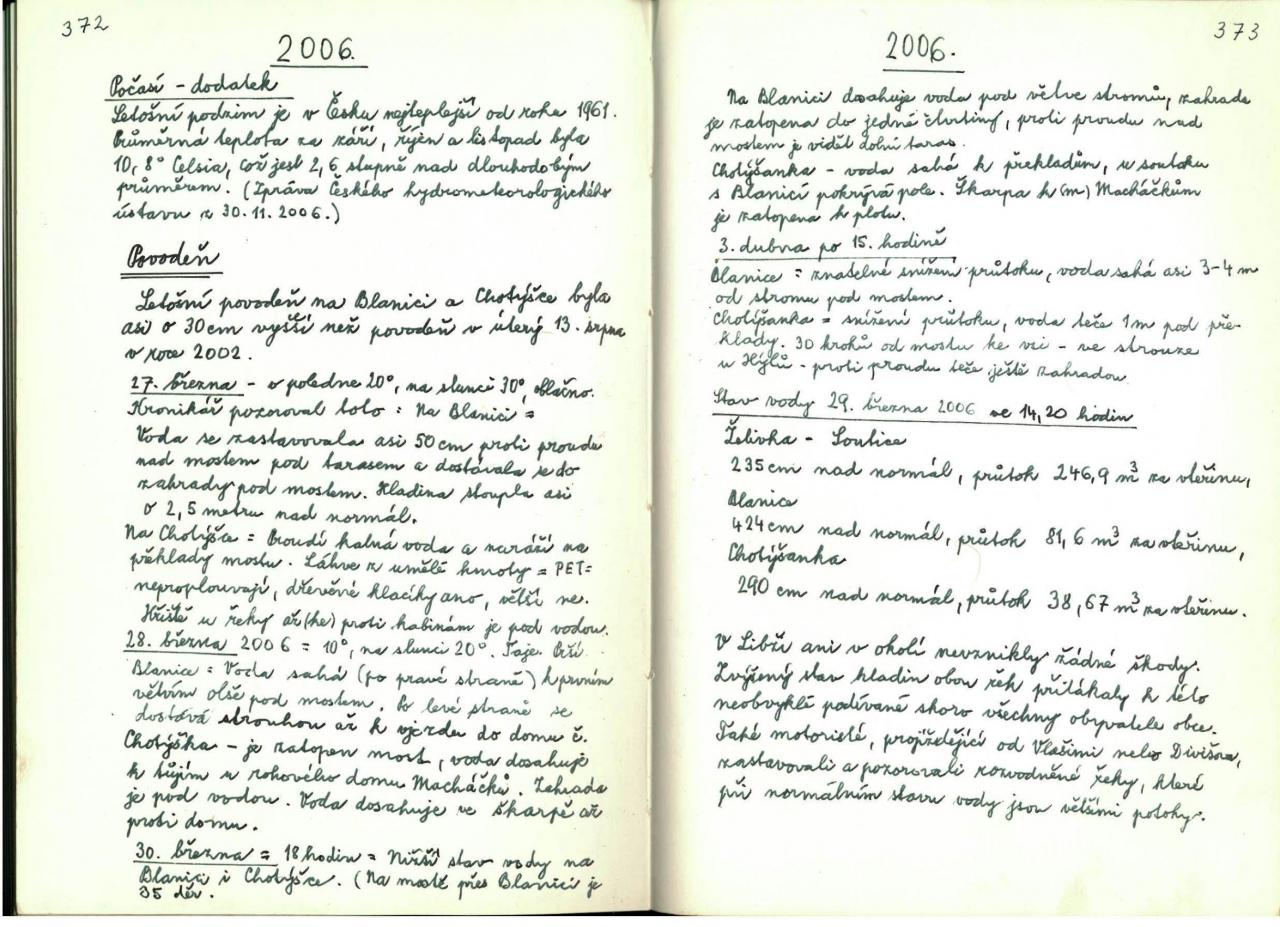 372
2006.
Počasí - dodatek
Letošní podzim je v Česku nejteplejší od roku 1961.
Průměrná teplota za září, říjen a listopad byla
10,8° Celsia, což jest 2,6 stupně nad dlouhodobým
průměrem. (Zpráva Českého hydrometeorologického
ústavu z 30.11.2006.)
Povodeň
Letošní povodeň na Blanici a Chotýšce byla
asi o 30cm vyšší než povodeň v úterý 13. srpna
v roce 2002.
27. března - o poledne 20°, na slunci 30°, oblačno.
Kronikář pozoroval toto: Na Blanici =
Voda se zastavovala asi 50cm proti proudu
nad mostem pod tarasem a dostávala se do
zahrady pod mostem. Hladina stoupla asi
o 2,5 metru nad normál.
Na Chotýšce = Proudí kalná voda a naráží na
překlady mostu. Láhve z umělé hmoty = PET=
neproplouvají, dřevěné klacíky ano, větší ne.
Hřiště u řeky až (ke) proti kabinám je pod vodou.
28. března 2006 = 10°, na slunci 20°. Taje. Prší.
Blanice = Voda sahá (po pravé straně) k prvním
větvím olše pod mostem. Po levé straně se
dostává strouhou až k vjezdu do domu č.
Chotýška - je zatopen most, voda dosahuje
k tújím u rohového domu Macháčků. Zahrada
je pod vodou. Voda dosahuje ve škarpě až
proti domu.
30. března = 18 hodin = Nižší stav vody na
Blanici i Chotýšce. (Na mostě přes Blanici je
35 děr.
373
2006.
Na Blanici dosahuje voda pod větve stromů, zahrada
je zatopena do jedné čtvrtiny, proti proudu nad
mostem je vidět dolní taras.
Chotýšanka - voda sahá k překladům, u soutoku
s Blanicí pokrývá pole. Škarpa k (m) Macháčkům
je zatopena k plotu.
3. dubna po 15. hodině
Blanice = znatelné snížení průtoku, voda sahá asi 3-4 m
od stromu pod mostem.
Chotýšanka = snížení průtoku, voda teče 1m pod pře-
klady. 30 kroků od mostu ke vsi - ve strouze
u Hýlů - proti proudu teče ještě zahradou.
Stav vody 29. března 2006 ve 14,20 hodin
Želivka - Soutice
235cm nad normál, průtok 246,9 m³ za vteřinu,
Blanice
424cm nad normál, průtok 81,6 m³ za vteřinu,
Chotýšanka
290 cm nad normál, průtok 38,67 m³ za vteřinu.
V Libži ani v okolí nevznikly žádné škody.
Zvýšený stav hladin obou řek přilákaly k této
neobvyklé podívané skoro všechny obyvatele obce.
Také motoristé, projíždějící od Vlašimi nebo Divišova,
zastavovali a pozorovali rozvodněné řeky, které
při normálním stavu vody jsou většími potoky.